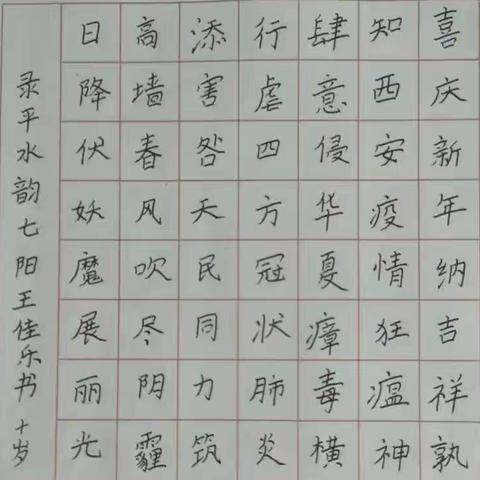 喜庆新年纳吉祥孰
知西安疫情狂瘟神
肆意侵华夏瘴毒横
行虐四方冠状肺炎
添害咎天民同力筑
高墙春风吹尽阴霾
日降伏妖魔展丽光
录平水韵七阳王佳乐书 十岁